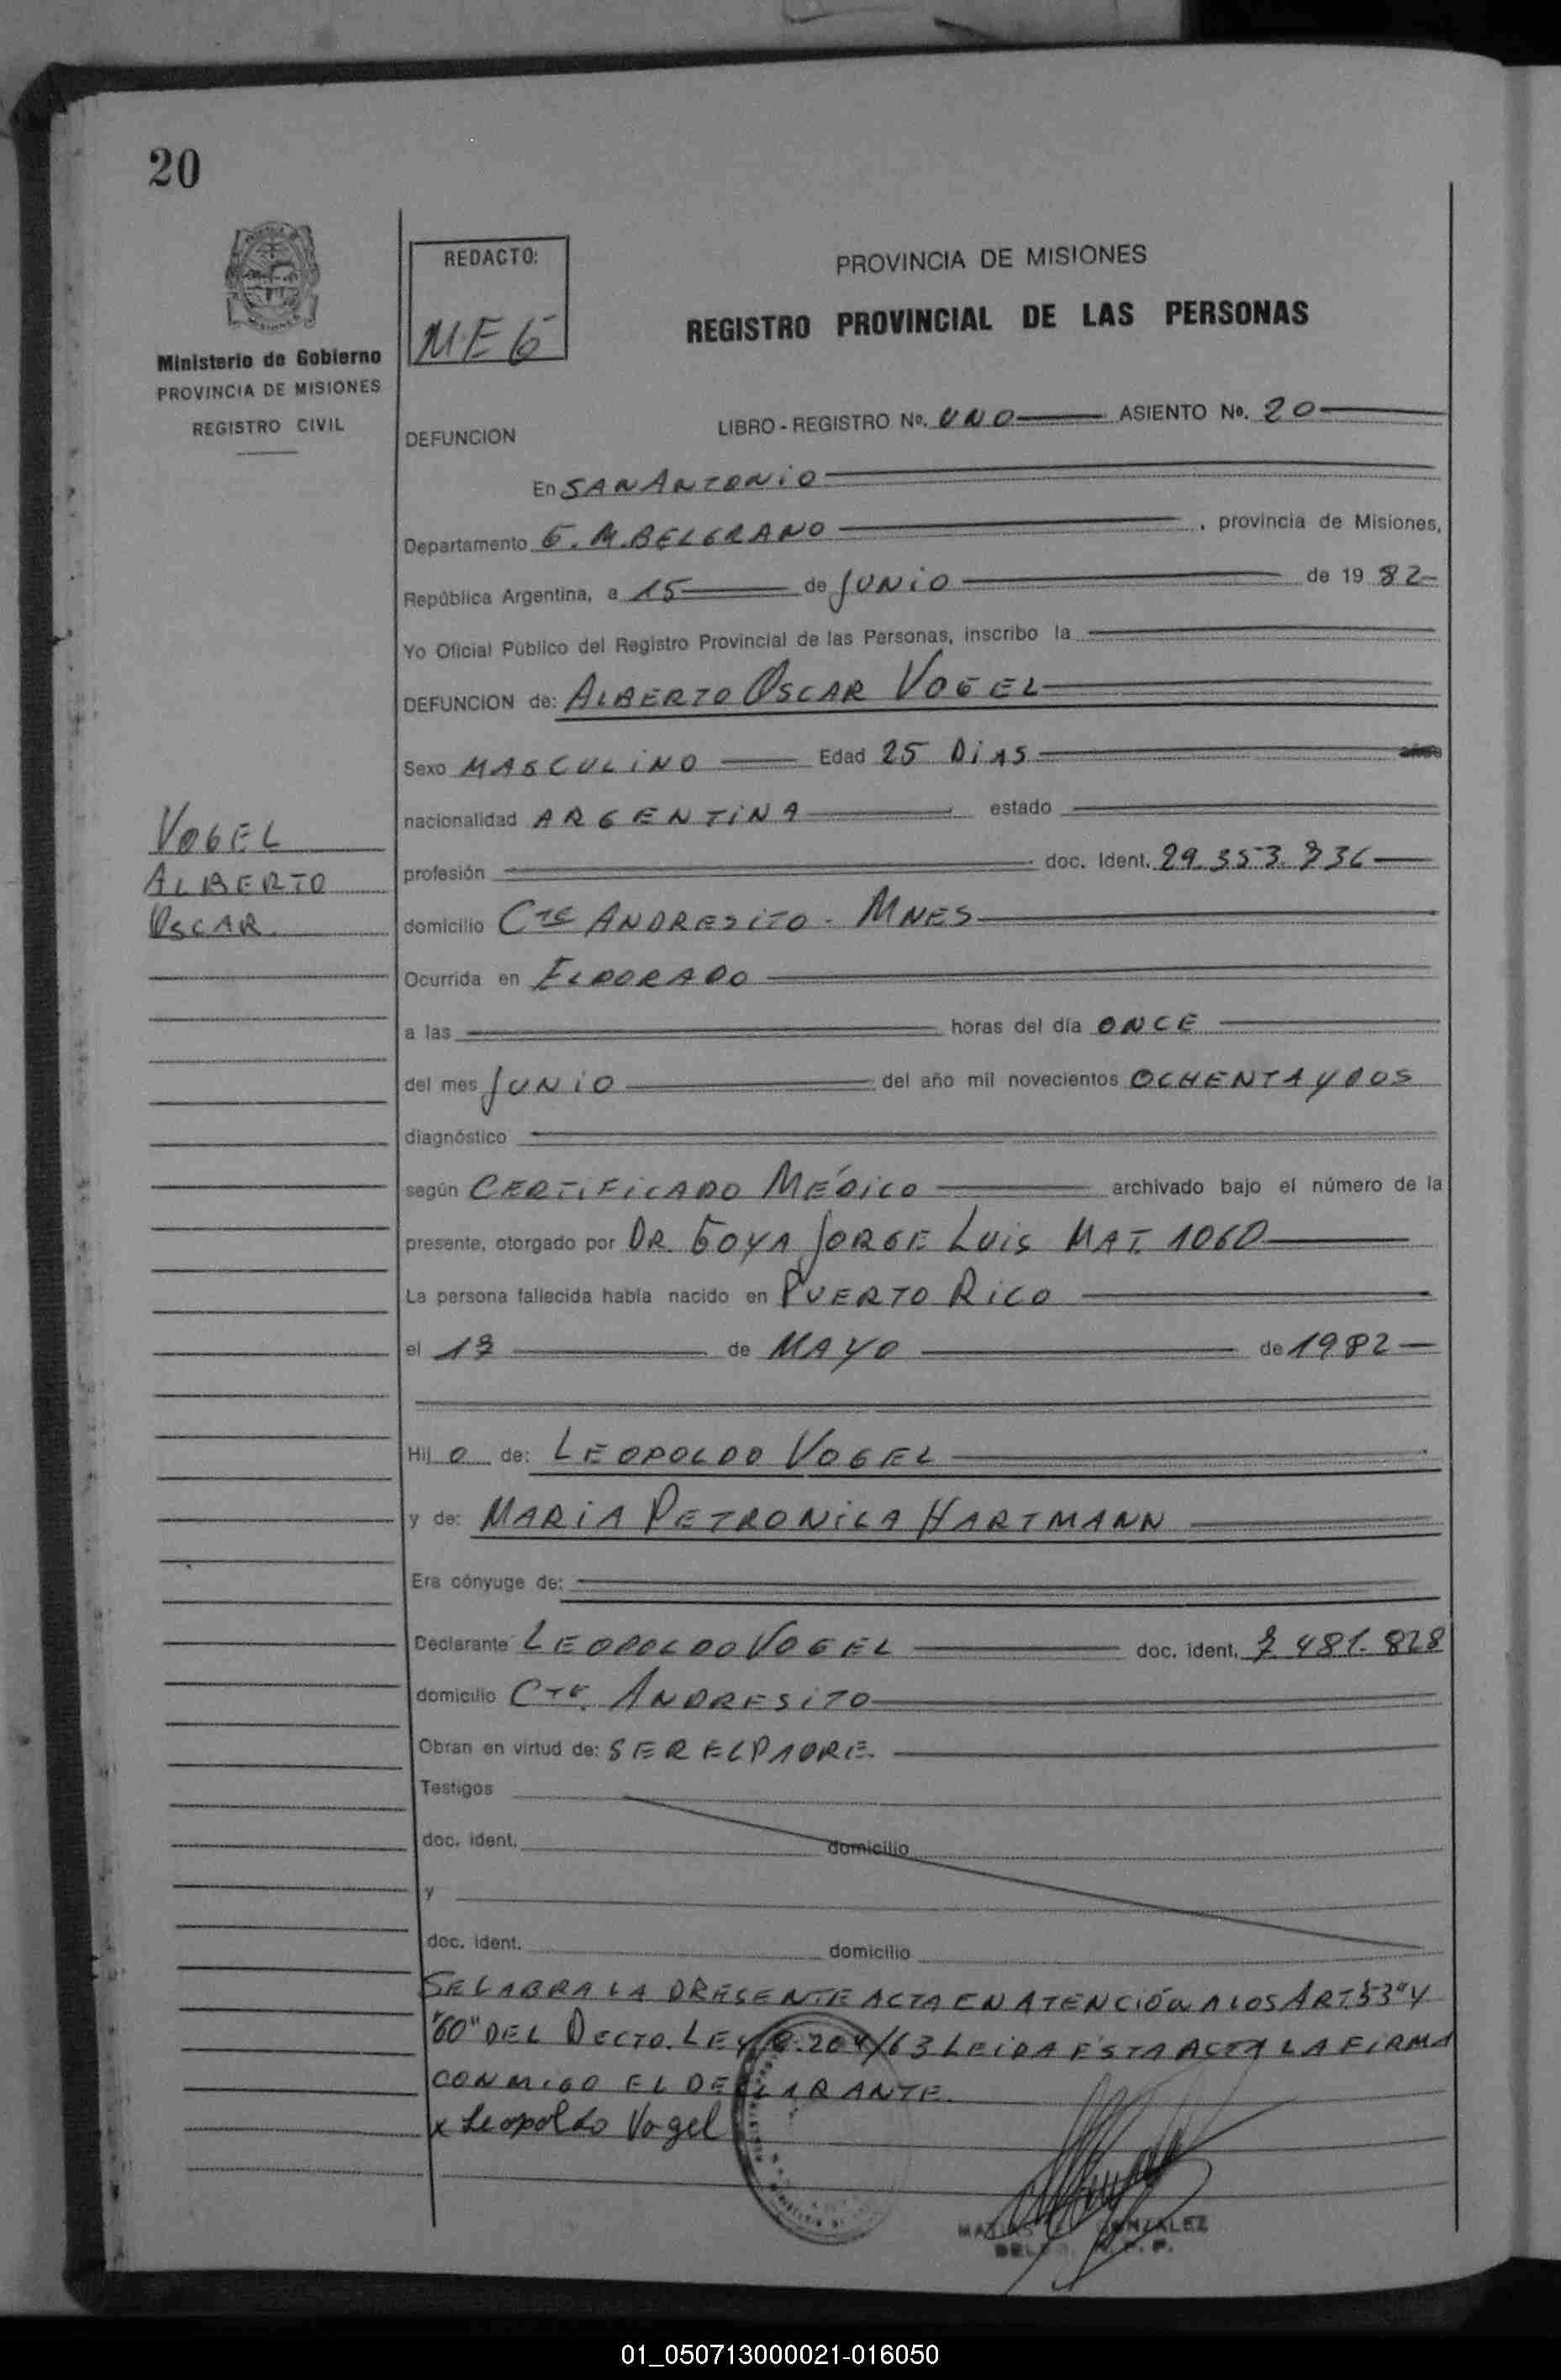 20
Ministerio de Gobierno
PROVINCIA DE MISIONES
REGISTRO CIVIL
REDACTO:
MEG
PROVINCIA DE MISIONES
REGISTRO PROVINCIAL DE LAS PERSONAS
DEFUNCION
LIBRO - REGISTRO Nº. UNO ASIENTO Nº. 20
En SAN ANTONIO
Departamento G. M. BELGRANO, provincia de Misiones,
República Argentina, a 15 de JUNIO de 19 82
Yo Oficial Público del Registro Provincial de las Personas, inscribo la
DEFUNCION de: ALBERTO OSCAR VOGEL
Sexo MASCULINO Edad 25 DIAS
nacionalidad ARGENTINA estado
VOGEL
ALBERTO
OSCAR
profesión doc. Ident. 29.353.
domicilio Cte ANDRESITO - MNES
Ocurrida en ELDORADO
a las horas del día ONCE
del mes JUNIO del año mil novecientos OCHENTA Y DOS
diagnóstico
según CERTIFICADO MÉDICO archivado bajo el número de la
presente, otorgado por DR. GOYA JORGE LUIS MAT. 1060
La persona fallecida había nacido en PUERTO RICO
el de MAYO de 1982
Hij o de: LEOPOLDO VOGEL
y de: MARIA PETRONILA HARTMANN
Era cónyuge de:
Declarante LEOPOLDO VOGEL doc. ident. 7.481.828
domicilio Cte. ANDRESITO
Obran en virtud de: SER EL PADRE.
Testigos
doc. ident. domicilio
y
doc. ident. domicilio
SE LABRA LA PRESENTE ACTA EN ATENCIÓN A LOS ART. 53" Y
"60" DEL DECTO. LEY 8.204/63 LEIDA ESTA ACTA LA FIRMA
CONMIGO EL DECLARANTE.
x Leopoldo Vogel
GONZALEZ
01_050713000021-016050